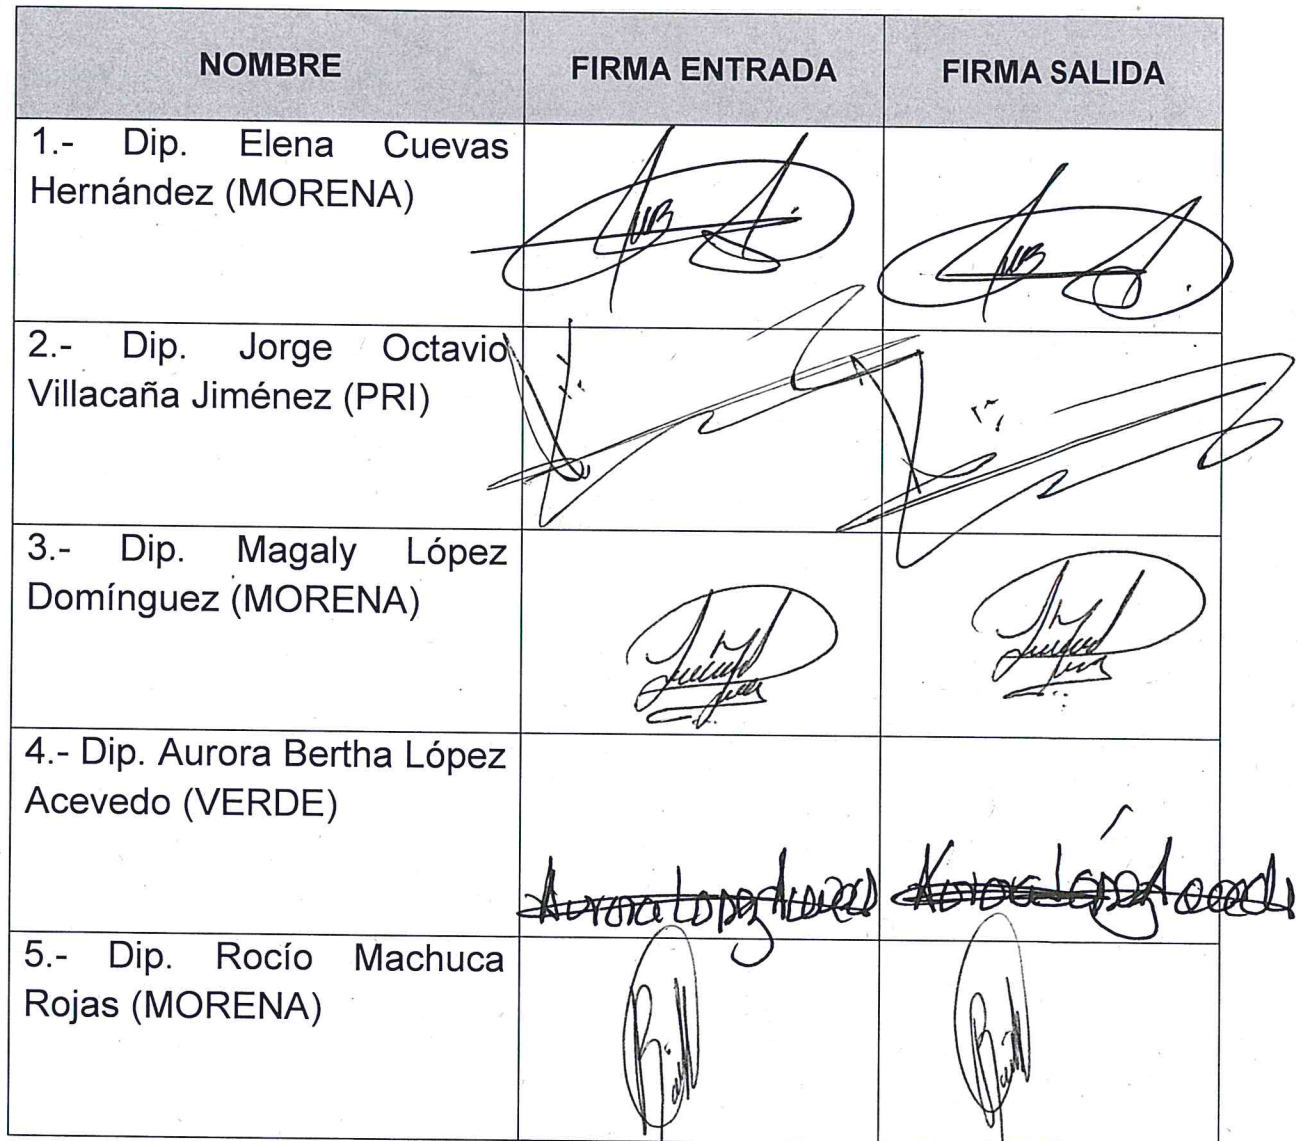 NOMBRE FIRMA ENTRADA FIRMA SALIDA
1.- Dip. Elena Cuevas
Hernández (MORENA)
2.- Dip. Jorge Octavio
Villacaña Jiménez (PRI)
3.- Dip. Magaly López
Domínguez (MORENA)
4.- Dip. Aurora Bertha López
Acevedo (VERDE)
Aurora Lopez Acevedo Aurora López Acevedo
5.- Dip. Rocío Machuca
Rojas (MORENA)